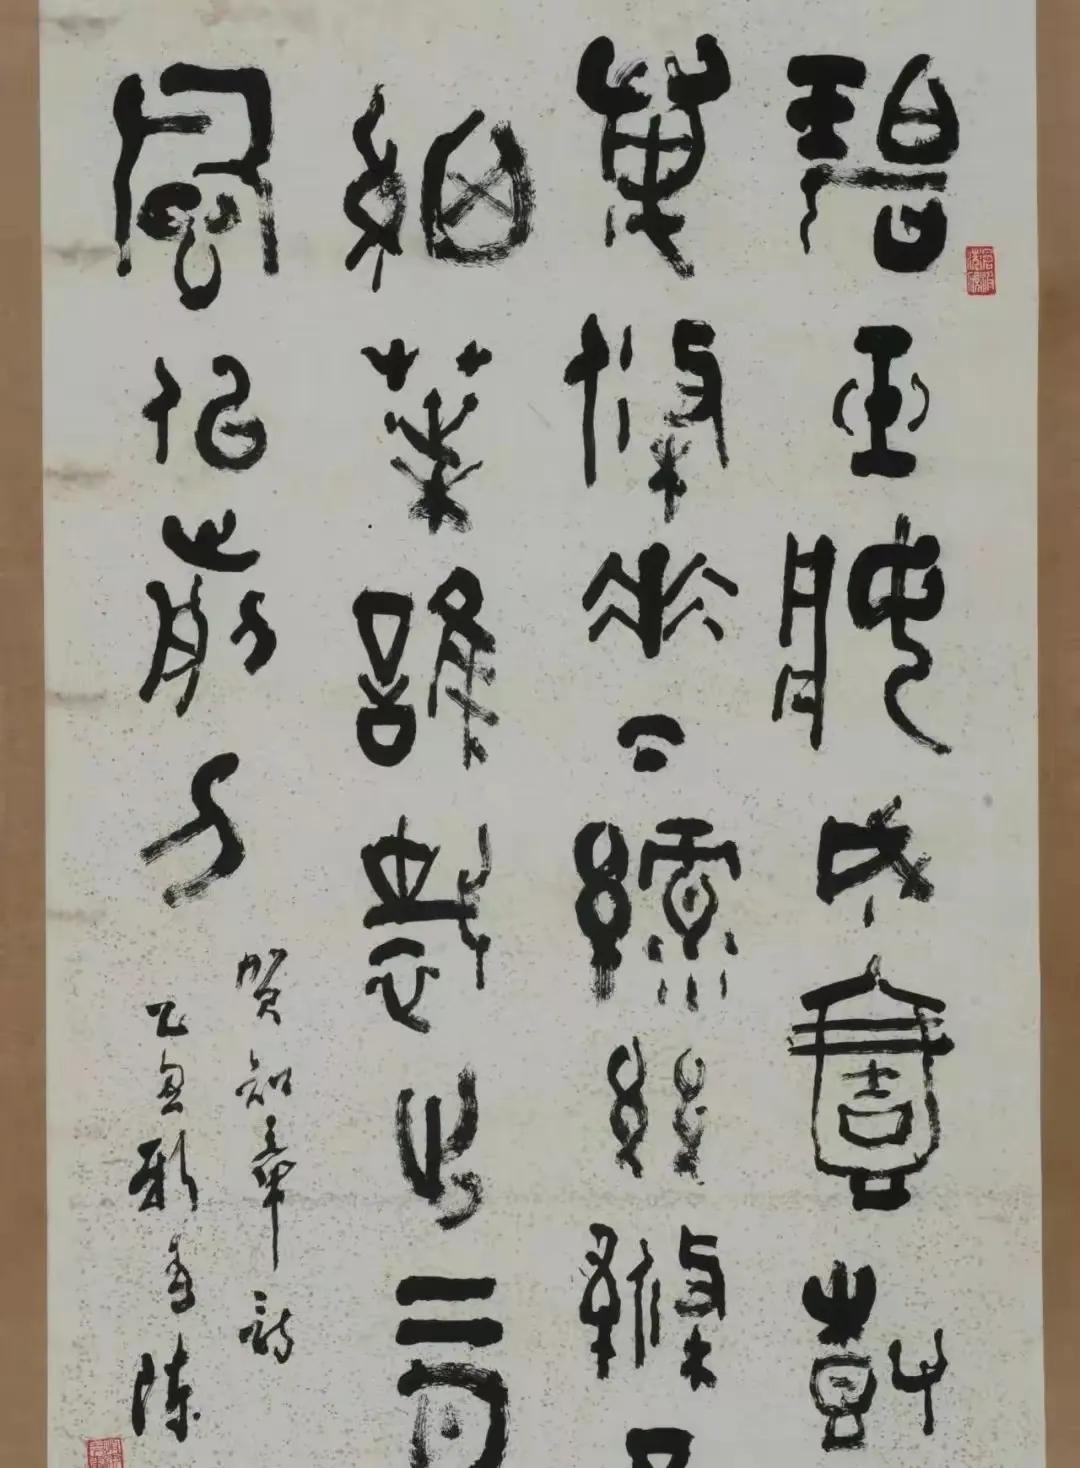 碧玉妝成壹樹
萬條垂下綠絲絛
細葉誰裁出二月
風似剪刀
賀知章詩
乙亥新春陳